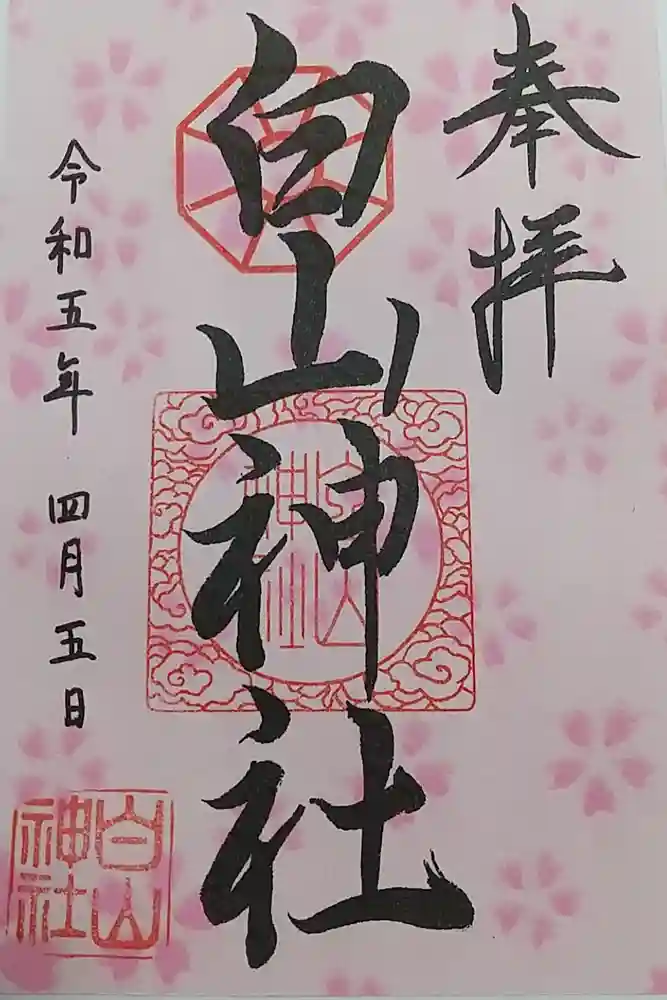 奉拝
白山神社
白山神社
令和五年 四月五日
白山神社